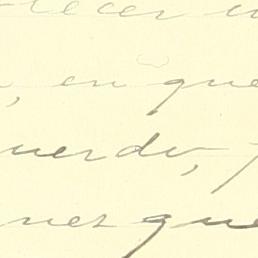 lecer
, en que
uerdo,
nes que